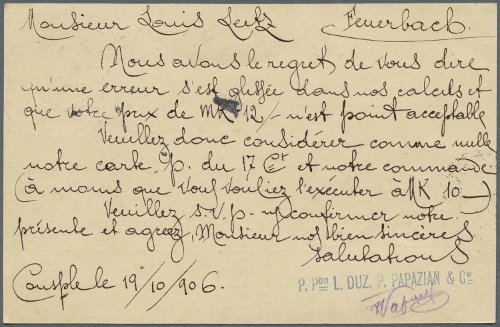 Monsieur Louis Leitz Feuerbach.
Nous avons le regret de vous dire
qu'une erreur s'est glissée dans nos calculs et
que votre prix de MK 12/- n'est point acceptable
Veuillez donc considérer comme nulle
notre carte p. du 17 Ct et notre commande
(à moins que vous vouliez l'exécuter à MK 10—)
Veuillez s.v.p. confirmer notre
présente et agréez, Monsieur nos bien sincères
salutations
Consple le 19/10/906.
P. Pon L. DUZ. P. PAPAZIAN & Co